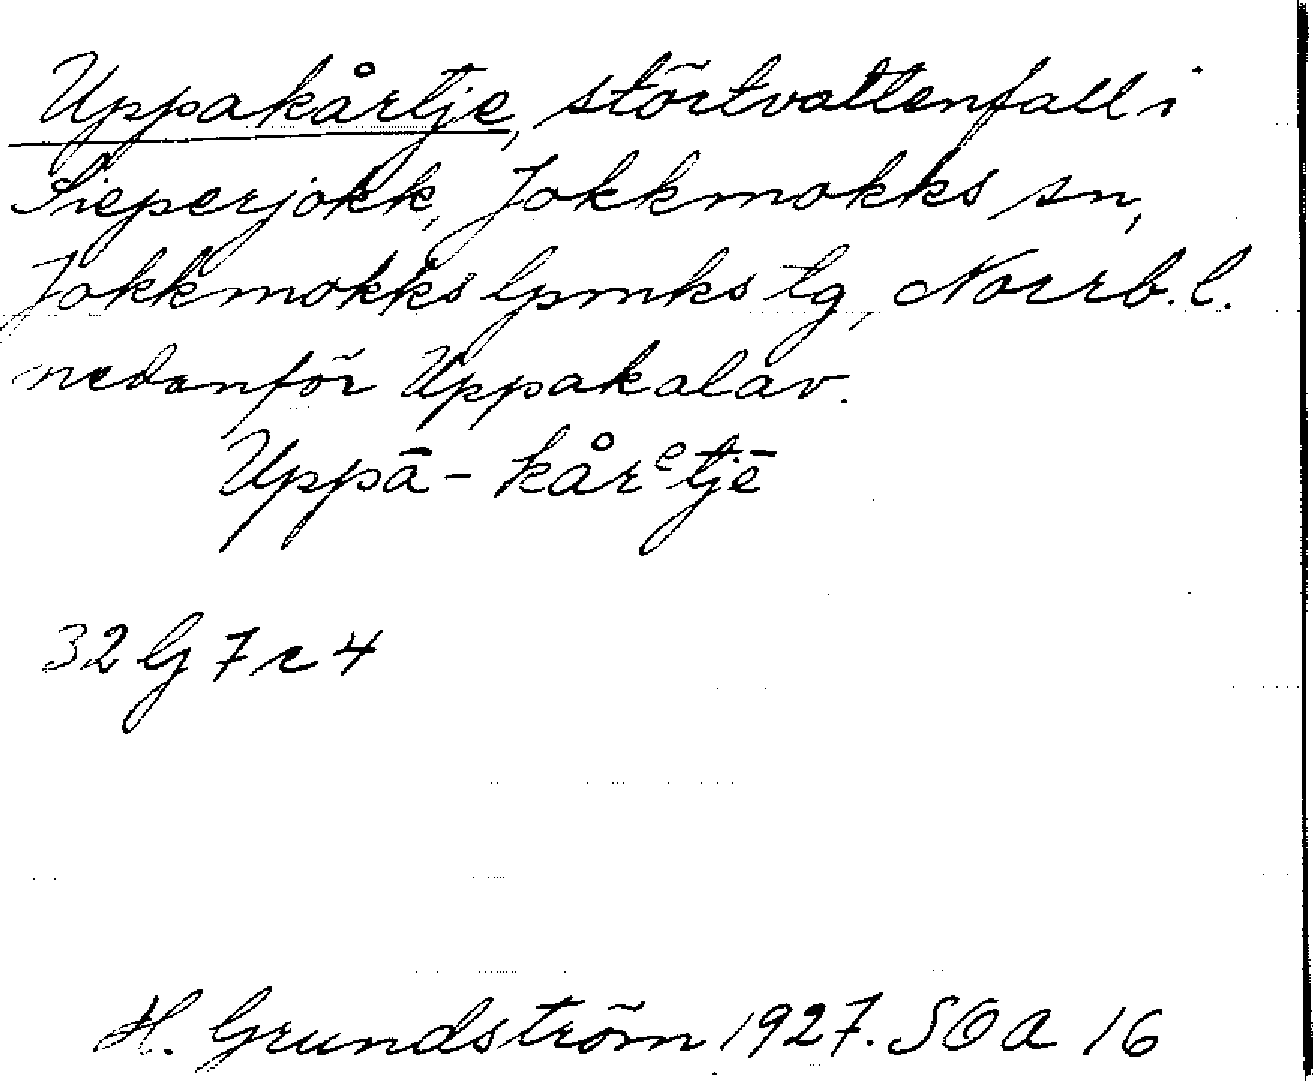 Uppakårtje, störtvattenfall i
Sieperjokk, Jokkmokks sn,
Jokkmokks lpmks tg, Norrb. l.
nedanför Uppakalav.
Uppā - kårᵉtjē
32 G 7 c 4
H. Grundström 1927. SOA 16